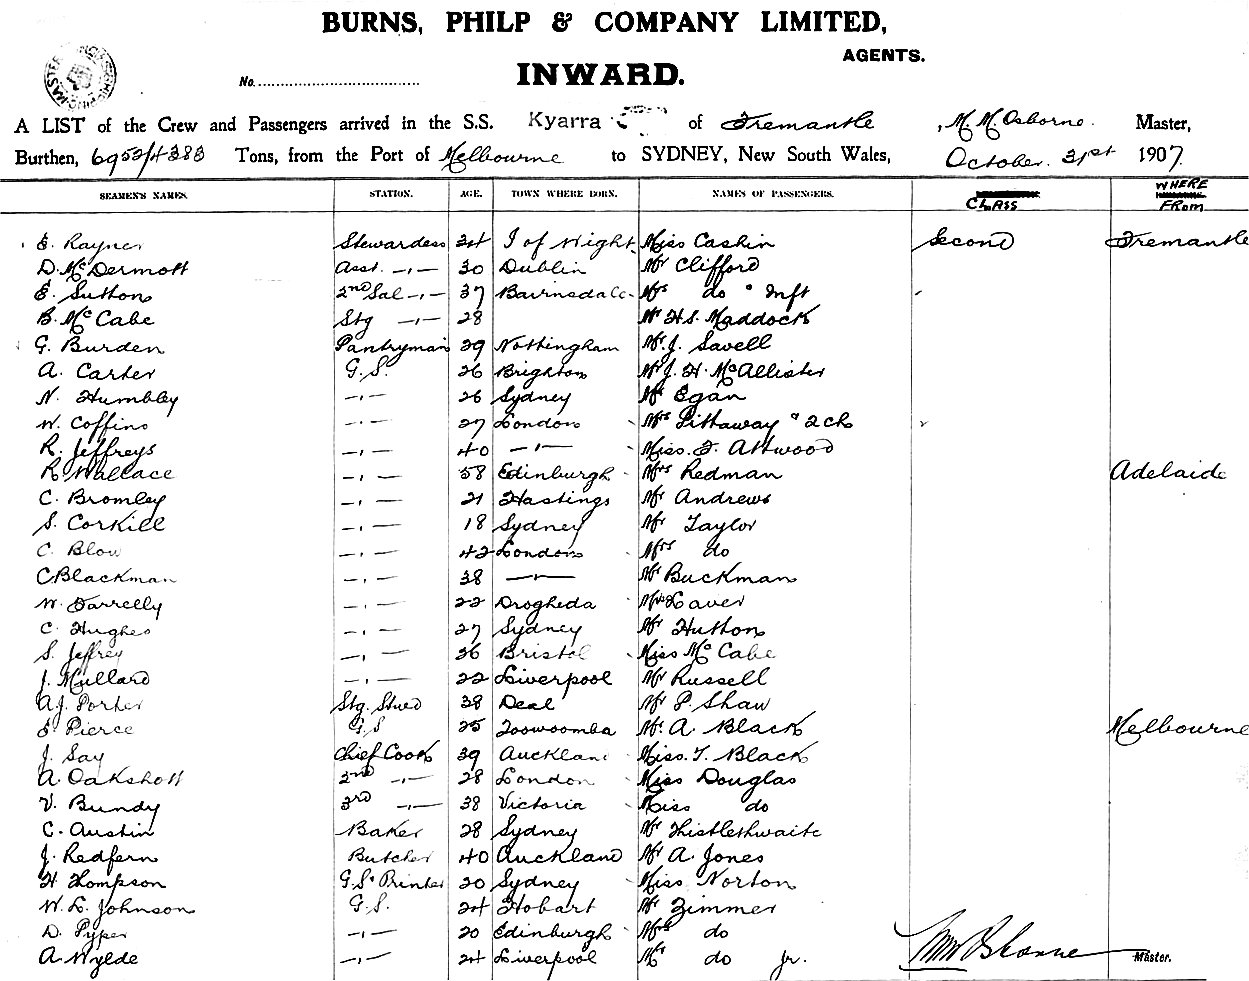 BURNS, PHILP & COMPANY LIMITED,
AGENTS.
No.
INWARD.
A LIST of the Crew and Passengers arrived in the S.S. Kyarra of Fremantle, M. M. Osborne. Master,
Burthen, 6952/4383 Tons, from the Port of Melbourne to SYDNEY, New South Wales, October. 31st 1907.
SEAMEN'S NAMES. STATION. AGE. TOWN WHERE BORN. NAMES OF PASSENGERS. CLASS WHERE FROM
E. Rayner Stewardess 34 I of Wight Miss Cashin Second Fremantle
D. McDermott Asst. -,- 30 Dublin Mr Clifford
E. Sutton 2nd Sal -,- 37 Mrs do & Inft
B. McCabe Stg -,- 28 Mr H.S. Maddock
G. Burden Pantryman 29 Nottingham Mr. J. Savell
A. Carter G.S. 26 Brighton Mr J. H. McAllister
N. Humbley -,- 26 Sydney Mr Egan
W. Coffins -,- 27 London Mrs Pittaway & 2 ch
R. Jeffreys -,- 40 -,- Miss. F. Attwood
R. Wallace -,- 58 Edinburgh Mrs Redman Adelaide
C. Bromley -,- 21 Hastings Mr Andrews
S. Corkill -,- 18 Sydney Mr Taylor
C. Blow -,- 42 London Mrs do
C Blackman -,- 38 -,- Mr Buckman
W. Farrelly -,- 22 Drogheda Mr Laver
C. Hughes -,- 27 Sydney Mr Hutton
S. Jeffrey -,- 36 Bristol Miss McCabe
J. Mullard -,- 22 Liverpool Mr Russell
A.J. Porter Stg. Stwd 38 Deal Mr P. Shaw
S. Pierce G.S 25 Toowoomba Mr. A. Black Melbourne
J. Say Chief Cook 39 Auckland Miss. T. Black
A. Oakshott 2nd -,- 28 London Miss Douglas
V. Bundy 3rd -,- 38 Victoria Miss do
C. Austin Baker 28 Sydney Mr Thistlethwaite
J. Redfern Butcher 40 Auckland Mr A. Jones
H. Thompson G.S. Printer 20 Sydney Miss Norton
W. L. Johnson G.S. 24 Hobart Mr Zimmer
D. Pyper -,- 20 Edinburgh Mrs do
A. Wylde -,- 24 Liverpool Mr do Jr.
Master.